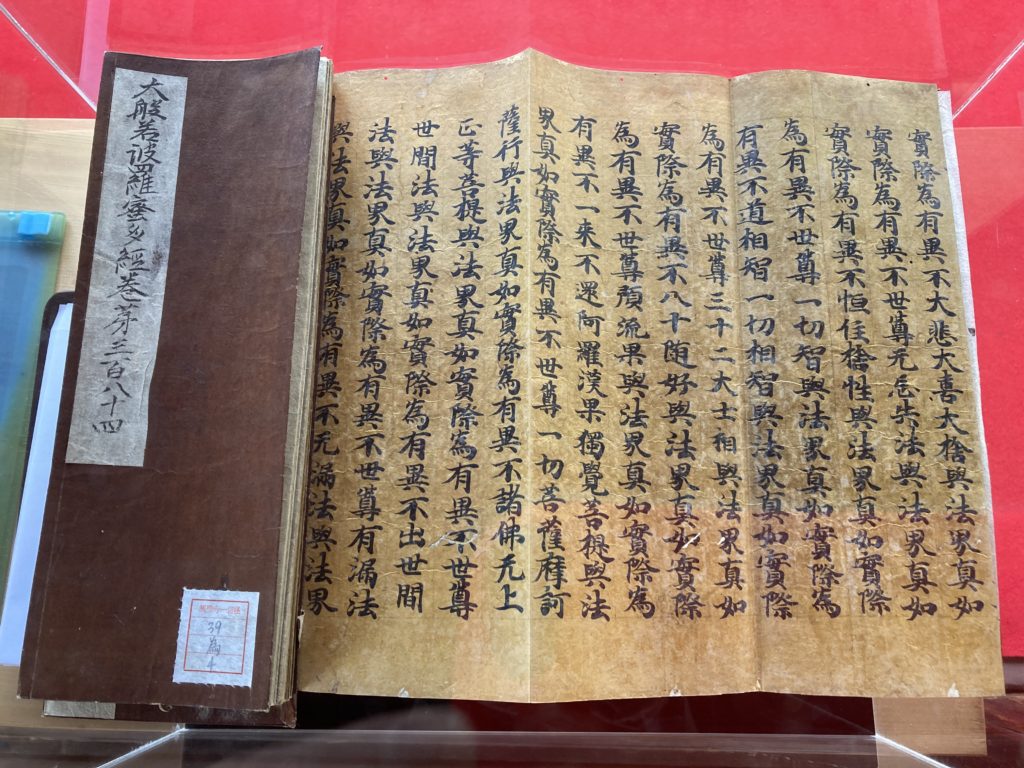 大般若波羅蜜多經卷苐三百八十四
實際為有異不大悲大喜大捨與法界真如
實際為有異不世尊无忘失法與法界真如
實際為有異不恒住捨性與法界真如實際
為有異不世尊一切智與法界真如實際為
有異不道相智一切相智與法界真如實際
為有異不世尊三十二大士相與法界真如
實際為有異不八十随好與法界真如實際
為有異不世尊預流果與法界真如實際為
有異不一来不還阿羅漢果獨覺菩提與法
界真如實際為有異不世尊一切菩薩摩訶
薩行與法界真如實際為有異不諸佛无上
正等菩提與法界真如實際為有異不世尊
世間法與法界真如實際為有異不出世間
法與法界真如實際為有異不世尊有漏法
與法界真如實際為有異不无漏法與法界
39
為
4